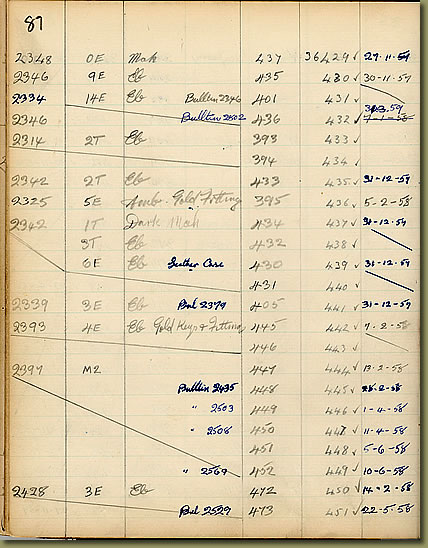 87
2348 0E Mah 437 36429 ✓ 29-11-57
2346 9E Eb 435 430 ✓ 30-11-57
2334 14E Eb Built in 2346 401 431 ✓
2346 Built in 2502 436 432 ✓
2314 2T Eb 393 433 ✓
394 434 ✓
2342 2T Eb 433 435 ✓ 31-12-57
2325 5E Gold Fitting 395 436 ✓ 5-2-58
2342 1T Dark Mah 434 437 ✓ 31-12-57
3T Eb 432 438 ✓
6E Eb Leather Case 430 439 ✓ 31-12-57
431 440 ✓
2339 3E Eb Bul 2379 405 441 ✓ 31-12-57
2393 4E Eb Gold Keys & Fitting 445 442 ✓ 7-2-58
446 443 ✓
2397 M2 447 444 ✓ 13-2-58
Built in 2435 448 445 ✓
" 2503 449 446 ✓ 1-4-58
" 2508 450 447 ✓ 11-4-58
451 448 ✓ 5-6-58
" 2569 452 449 ✓ 10-6-58
2428 3E Eb 472 450 ✓ 14-2-58
Bul 2529 473 451 ✓ 22-5-58